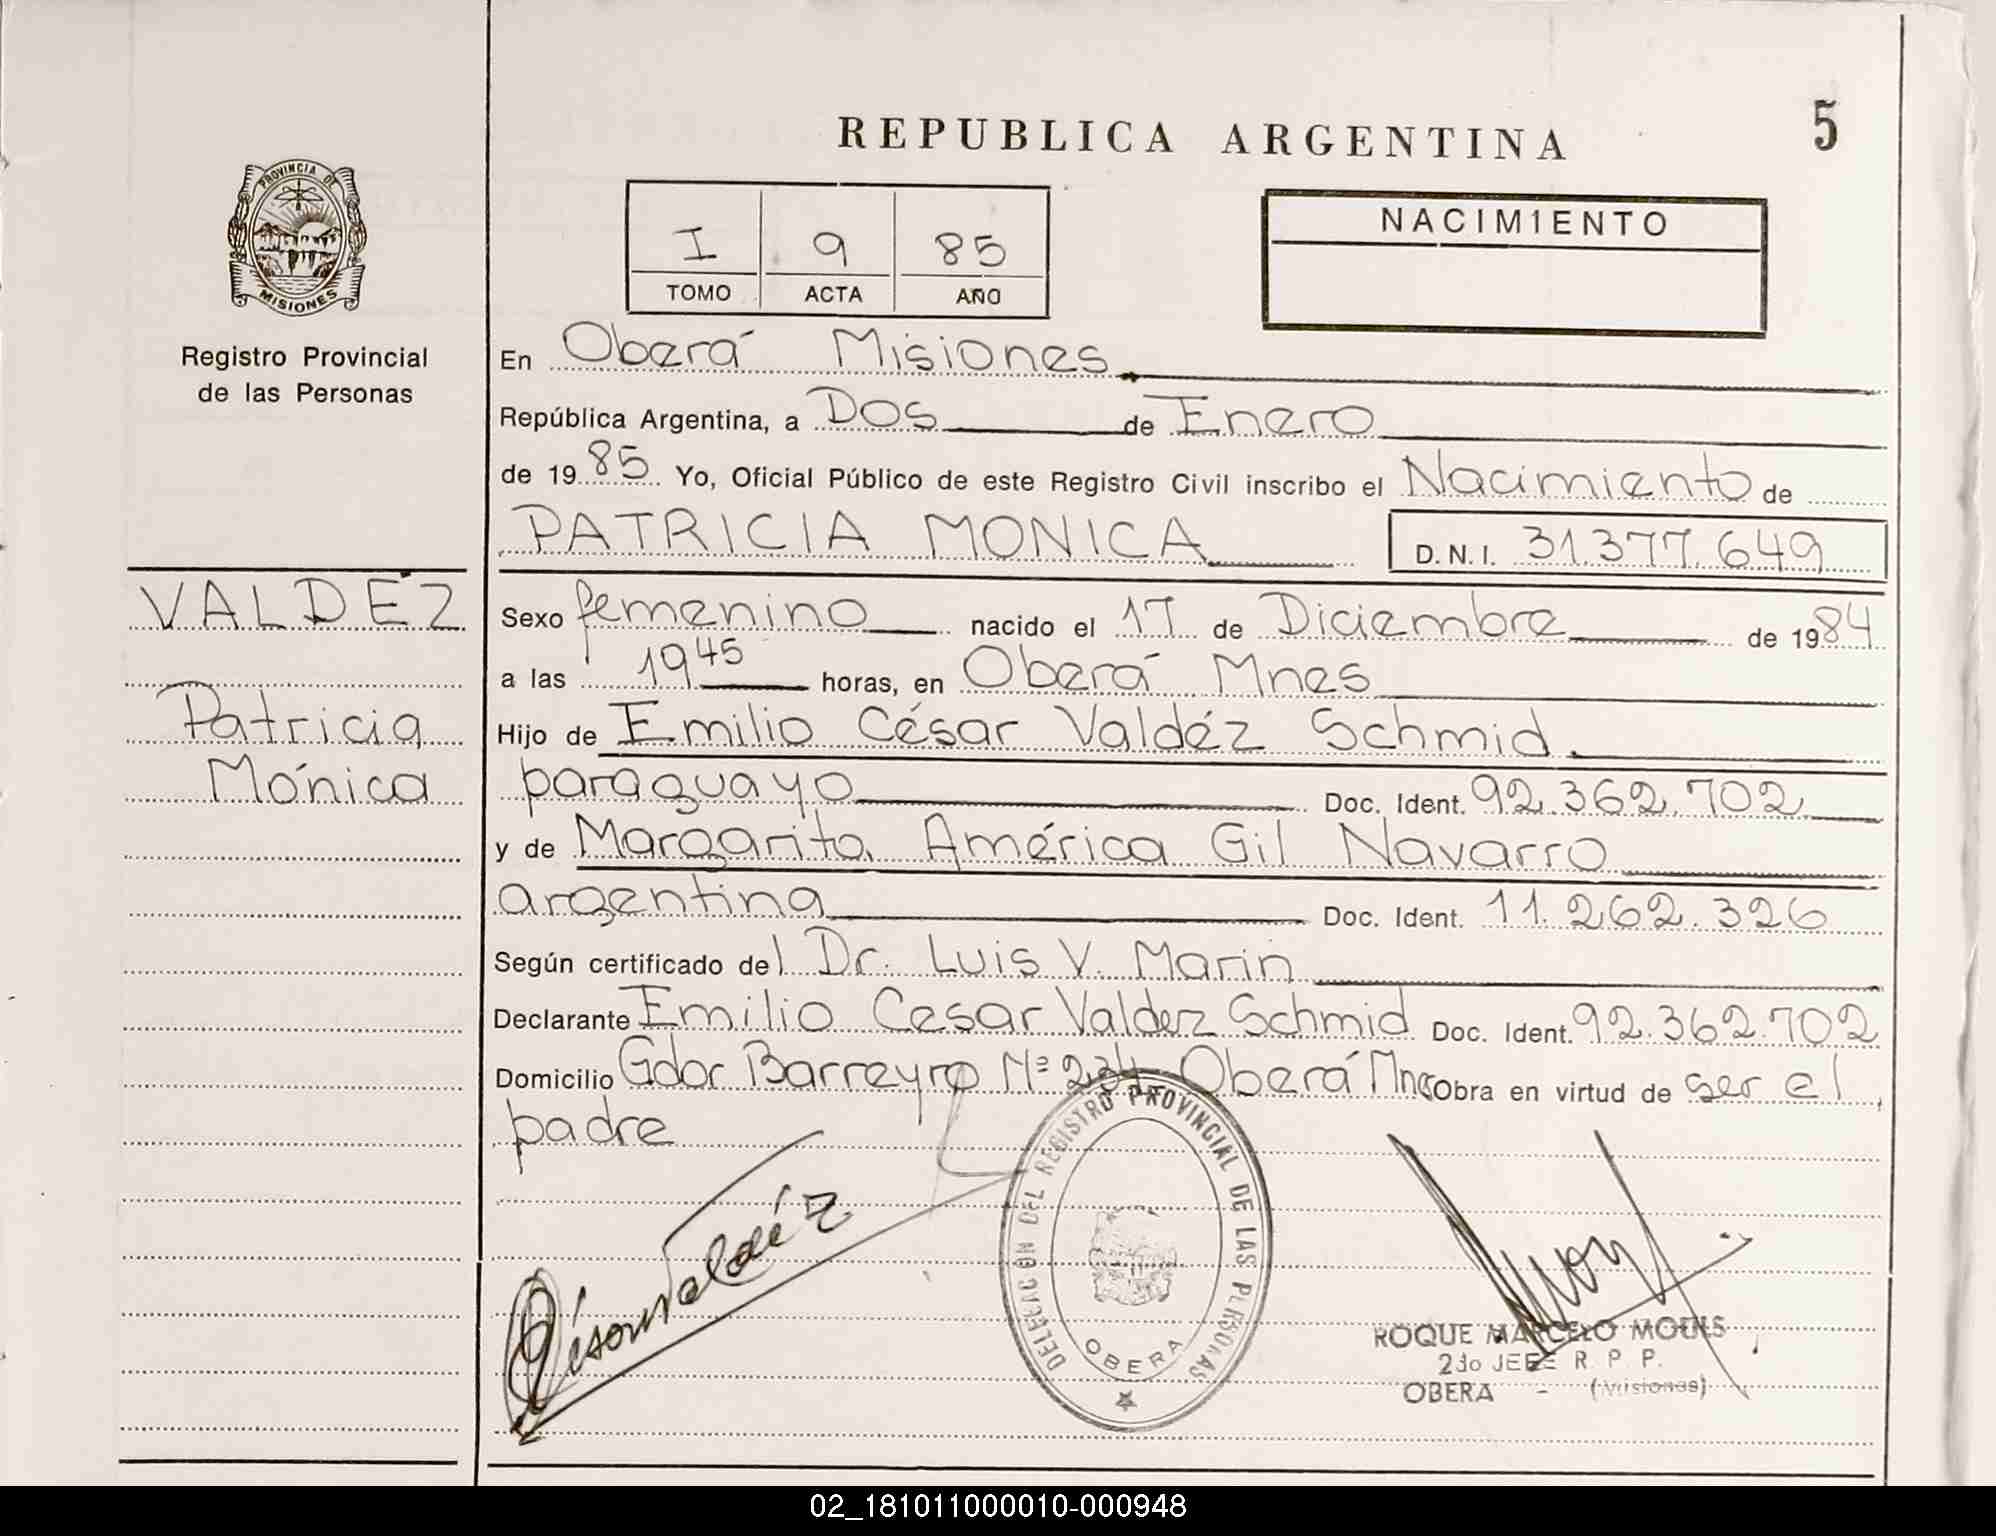 REPUBLICA ARGENTINA
5
PROVINCIA DE
MISIONES
Registro Provincial
de las Personas
I 9 85
TOMO ACTA AÑO
NACIMIENTO
En Oberá Misiones
República Argentina, a Dos de Enero
de 1985 Yo, Oficial Público de este Registro Civil inscribo el Nacimiento de
PATRICIA MONICA D.N.I. 31.377.649
VALDÉZ
Patricia
Mónica
Sexo femenino nacido el 17 de Diciembre de 1984
a las 19 45 horas, en Oberá Mnes
Hijo de Emilio César Valdéz Schmid
paraguayo Doc. Ident. 92.362.702
y de Margarita América Gil Navarro
argentina Doc. Ident. 11.262.326
Según certificado del Dr. Luis V. Marin
Declarante Emilio Cesar Valdez Schmid Doc. Ident. 92.362.702
Domicilio Gdor Barreyro Nº 234 Oberá Mnes Obra en virtud de ser el
padre
DELEGACION DEL REGISTRO PROVINCIAL DE LAS PERSONAS
OBERA
ROQUE MARCELO MOULS
2do JEFE R. P. P.
OBERA - (Misiones)
02_181011000010-000948